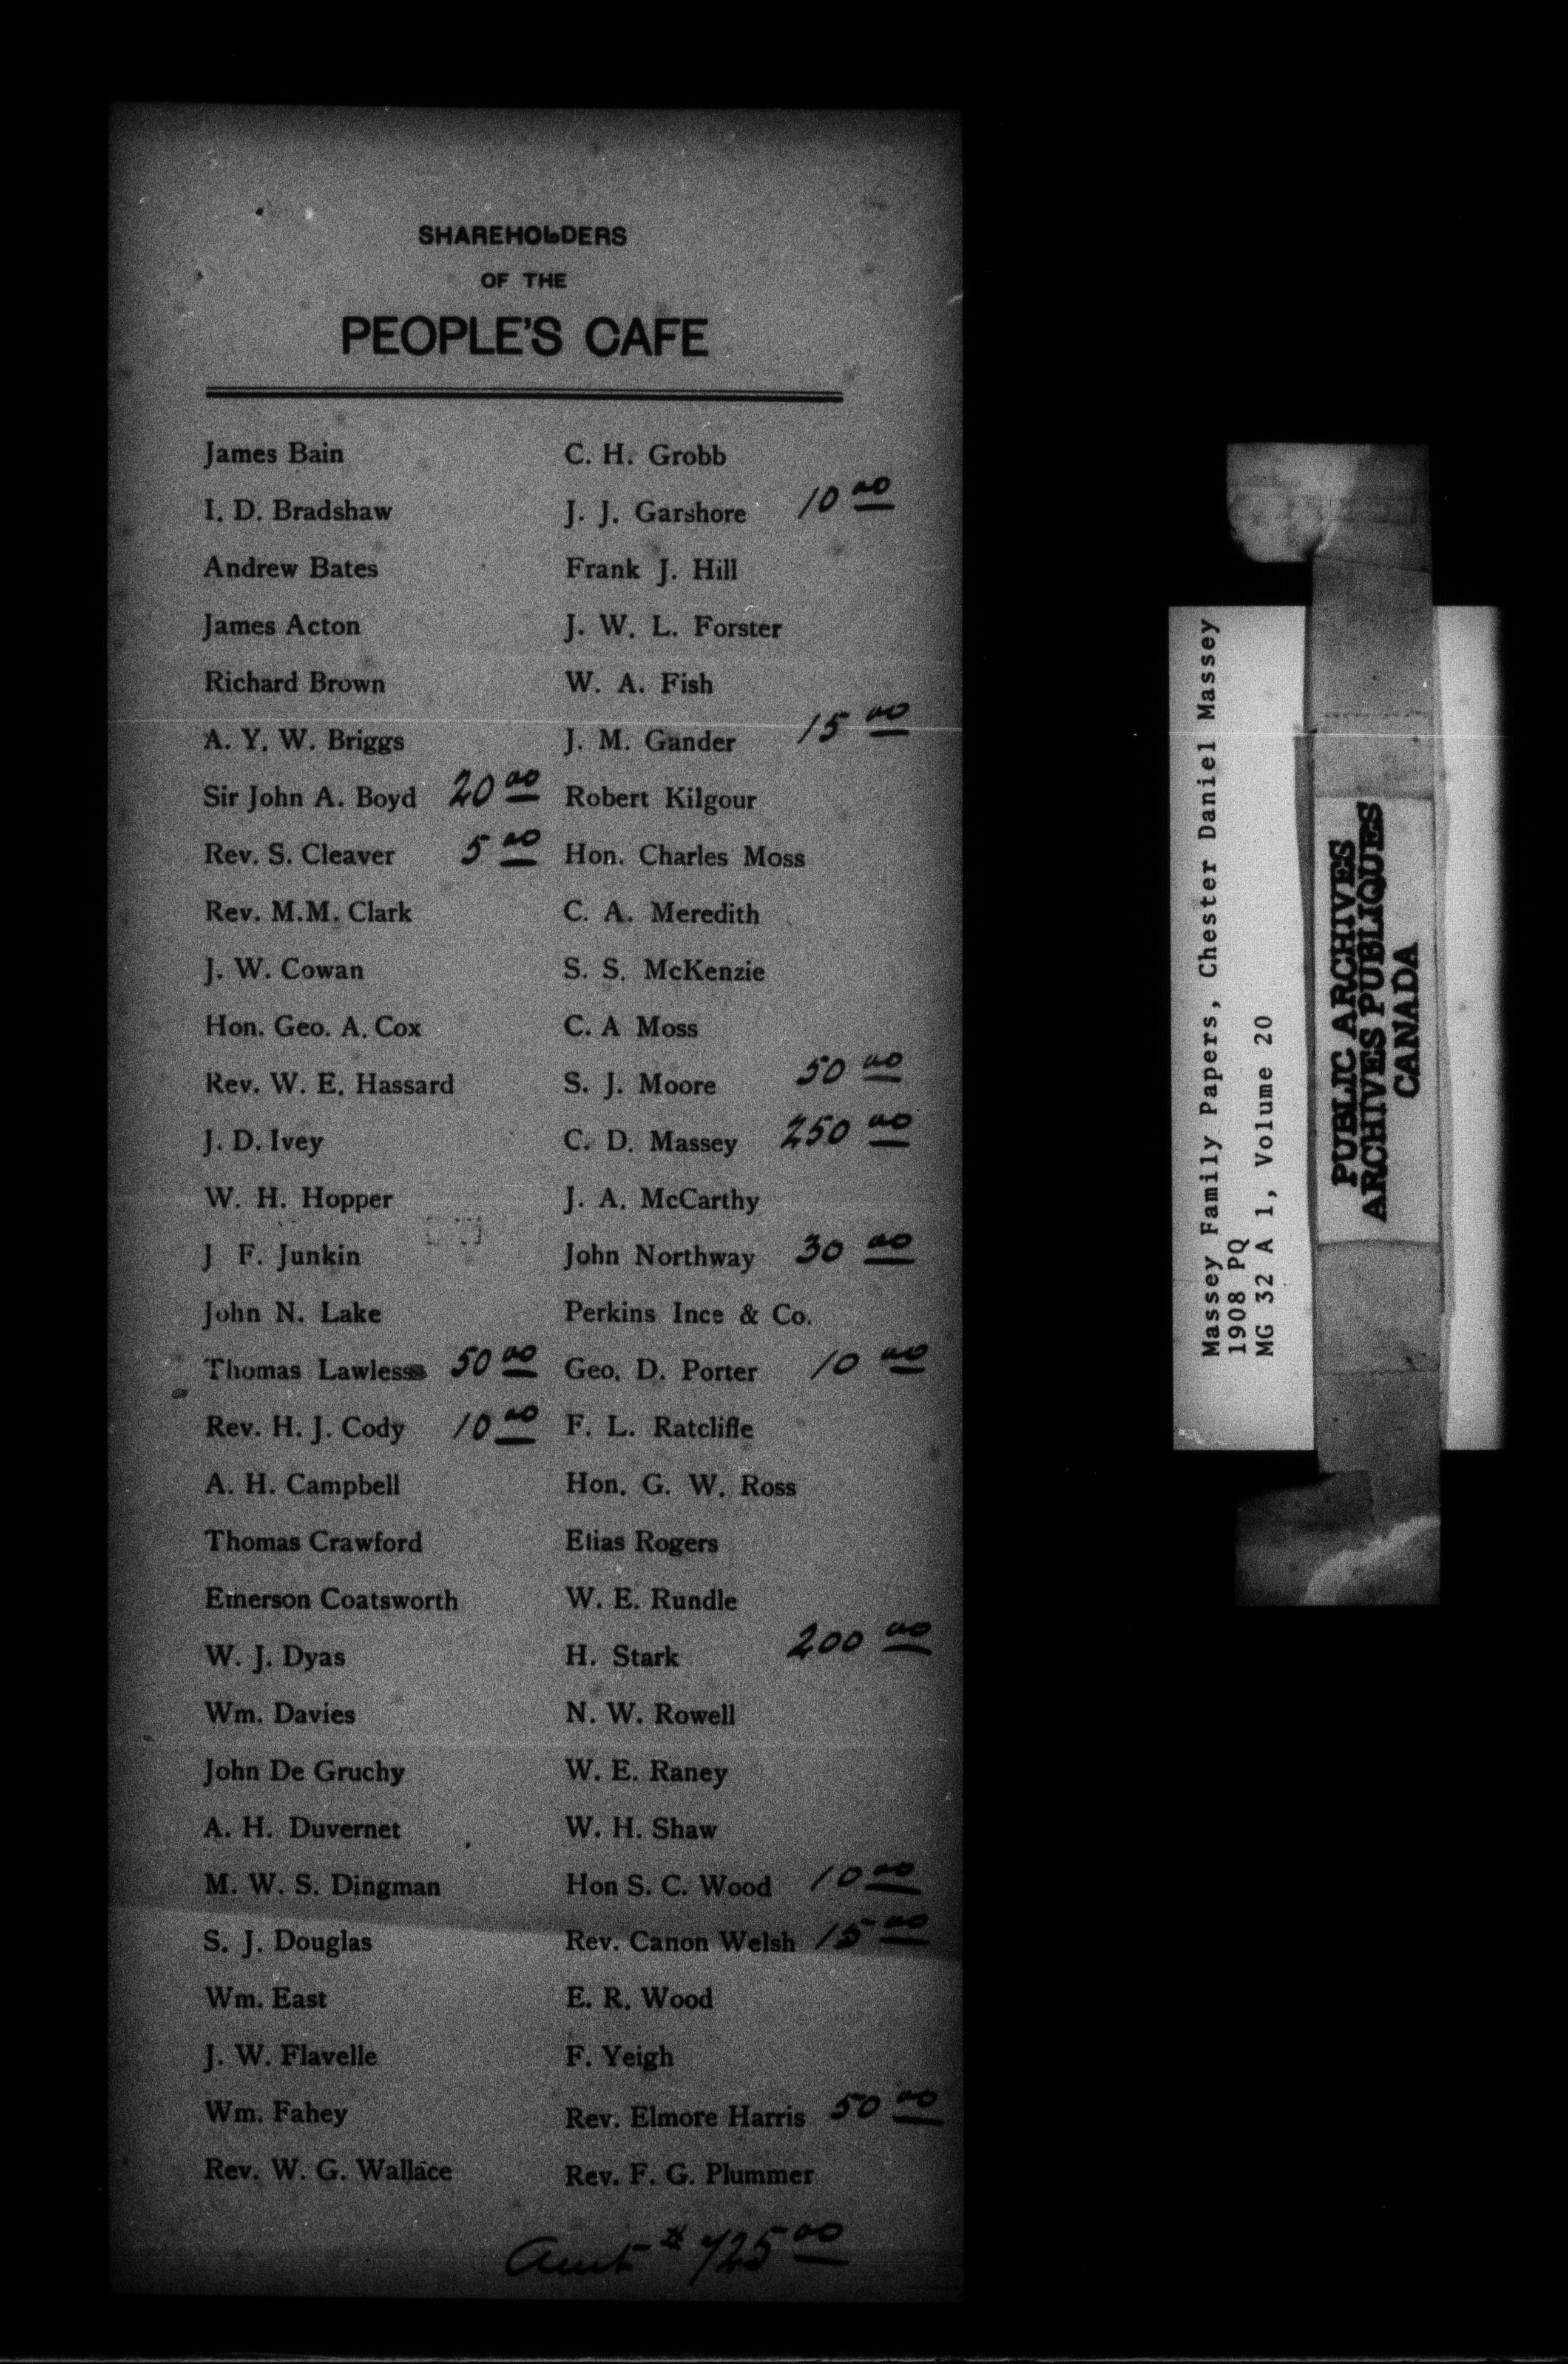 SHAREHOLDERS
OF THE
PEOPLE'S CAFE
James Bain
I. D. Bradshaw
Andrew Bates
James Acton
Richard Brown
A. Y. W. Briggs
Sir John A. Boyd 20 00
Rev. S. Cleaver 5 00
Rev. M.M. Clark
J. W. Cowan
Hon. Geo. A. Cox
Rev. W. E. Hassard
J. D. Ivey
W. H. Hopper
J F. Junkin
John N. Lake
Thomas Lawless 50 00
Rev. H. J. Cody 10 00
A. H. Campbell
Thomas Crawford
Emerson Coatsworth
W. J. Dyas
Wm. Davies
John De Gruchy
A. H. Duvernet
M. W. S. Dingman
S. J. Douglas
Wm. East
J. W. Flavelle
Wm. Fahey
Rev. W. G. Wallace
C. H. Grobb
J. J. Garshore 10 00
Frank J. Hill
J. W. L. Forster
W. A. Fish
J. M. Gander 15 00
Robert Kilgour
Hon. Charles Moss
C. A. Meredith
S. S. McKenzie
C. A Moss
S. J. Moore 50 00
C. D. Massey 250 00
J. A. McCarthy
John Northway 30 00
Perkins Ince & Co.
Geo. D. Porter 10 00
F. L. Ratcliffe
Hon. G. W. Ross
Elias Rogers
W. E. Rundle
H. Stark 200 00
N. W. Rowell
W. E. Raney
W. H. Shaw
Hon S. C. Wood 10 00
Rev. Canon Welsh 15 00
E. R. Wood
F. Yeigh
Rev. Elmore Harris 50 00
Rev. F. G. Plummer
Amt $ 725 00
Massey Family Papers, Chester Daniel Massey
1908 PQ
MG 32 A 1, Volume 20
PUBLIC ARCHIVES
ARCHIVES PUBLIQUES
CANADA